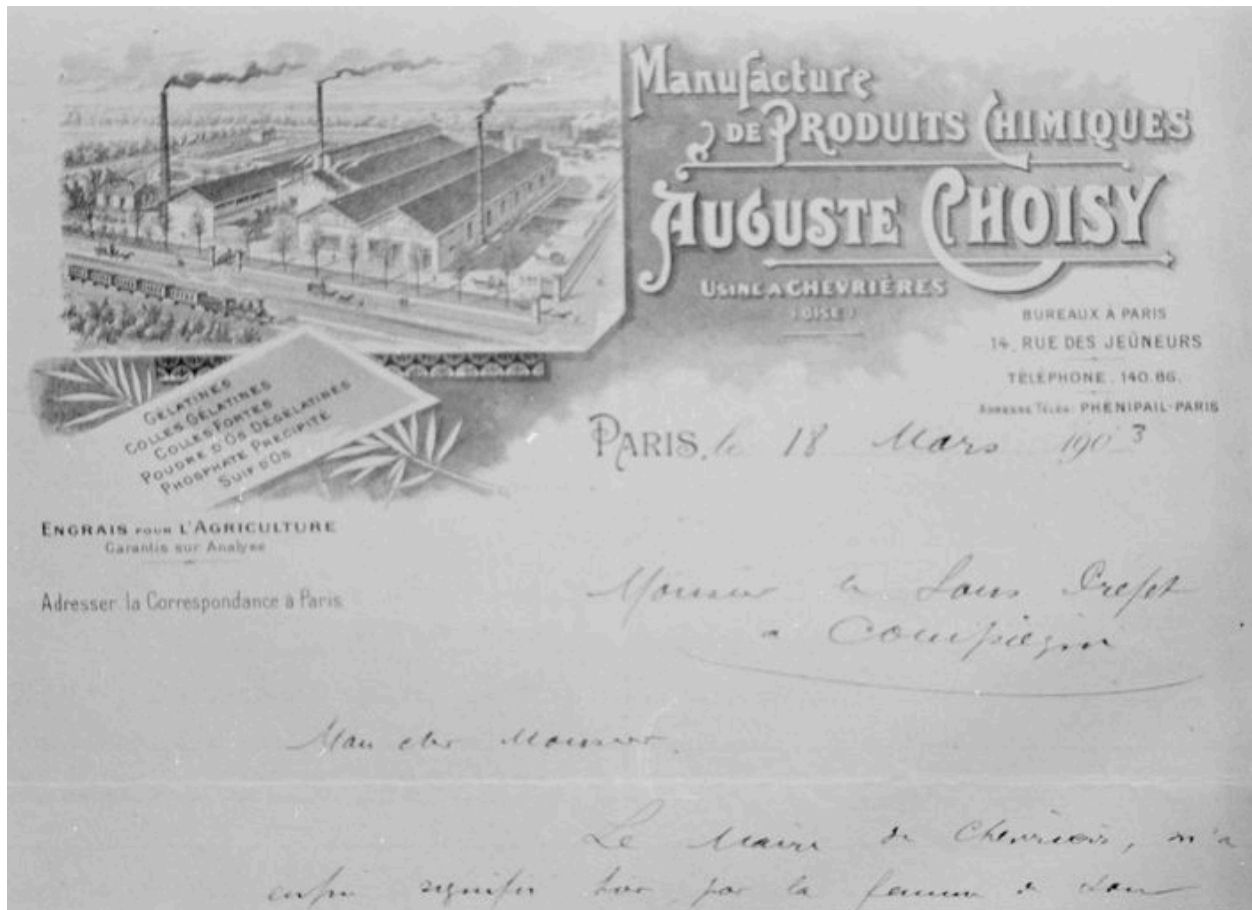 Manufacture
DE PRODUITS CHIMIQUES
AUGUSTE CHOISY
USINE A CHEVRIÈRES
(OISE)
BUREAUX À PARIS
14, RUE DES JEÛNEURS
TÉLÉPHONE. 140.86.
ADRESSE TÉLÉG: PHENIPAIL-PARIS
GÉLATINES
COLLES GÉLATINES
COLLES FORTES
POUDRE D'OS DÉGÉLATINÉS
PHOSPHATE PRÉCIPITÉ
SUIF D'OS
PARIS, le 18 Mars 1903
ENGRAIS POUR L'AGRICULTURE
Garantis sur Analyse
Adresser la Correspondance à Paris
Monsieur le Sous Prefet
a Compiegne
Mon cher Monsieur,
Le Maire de Chevrieres, m'a
enfin signifier hier, par la femme de son